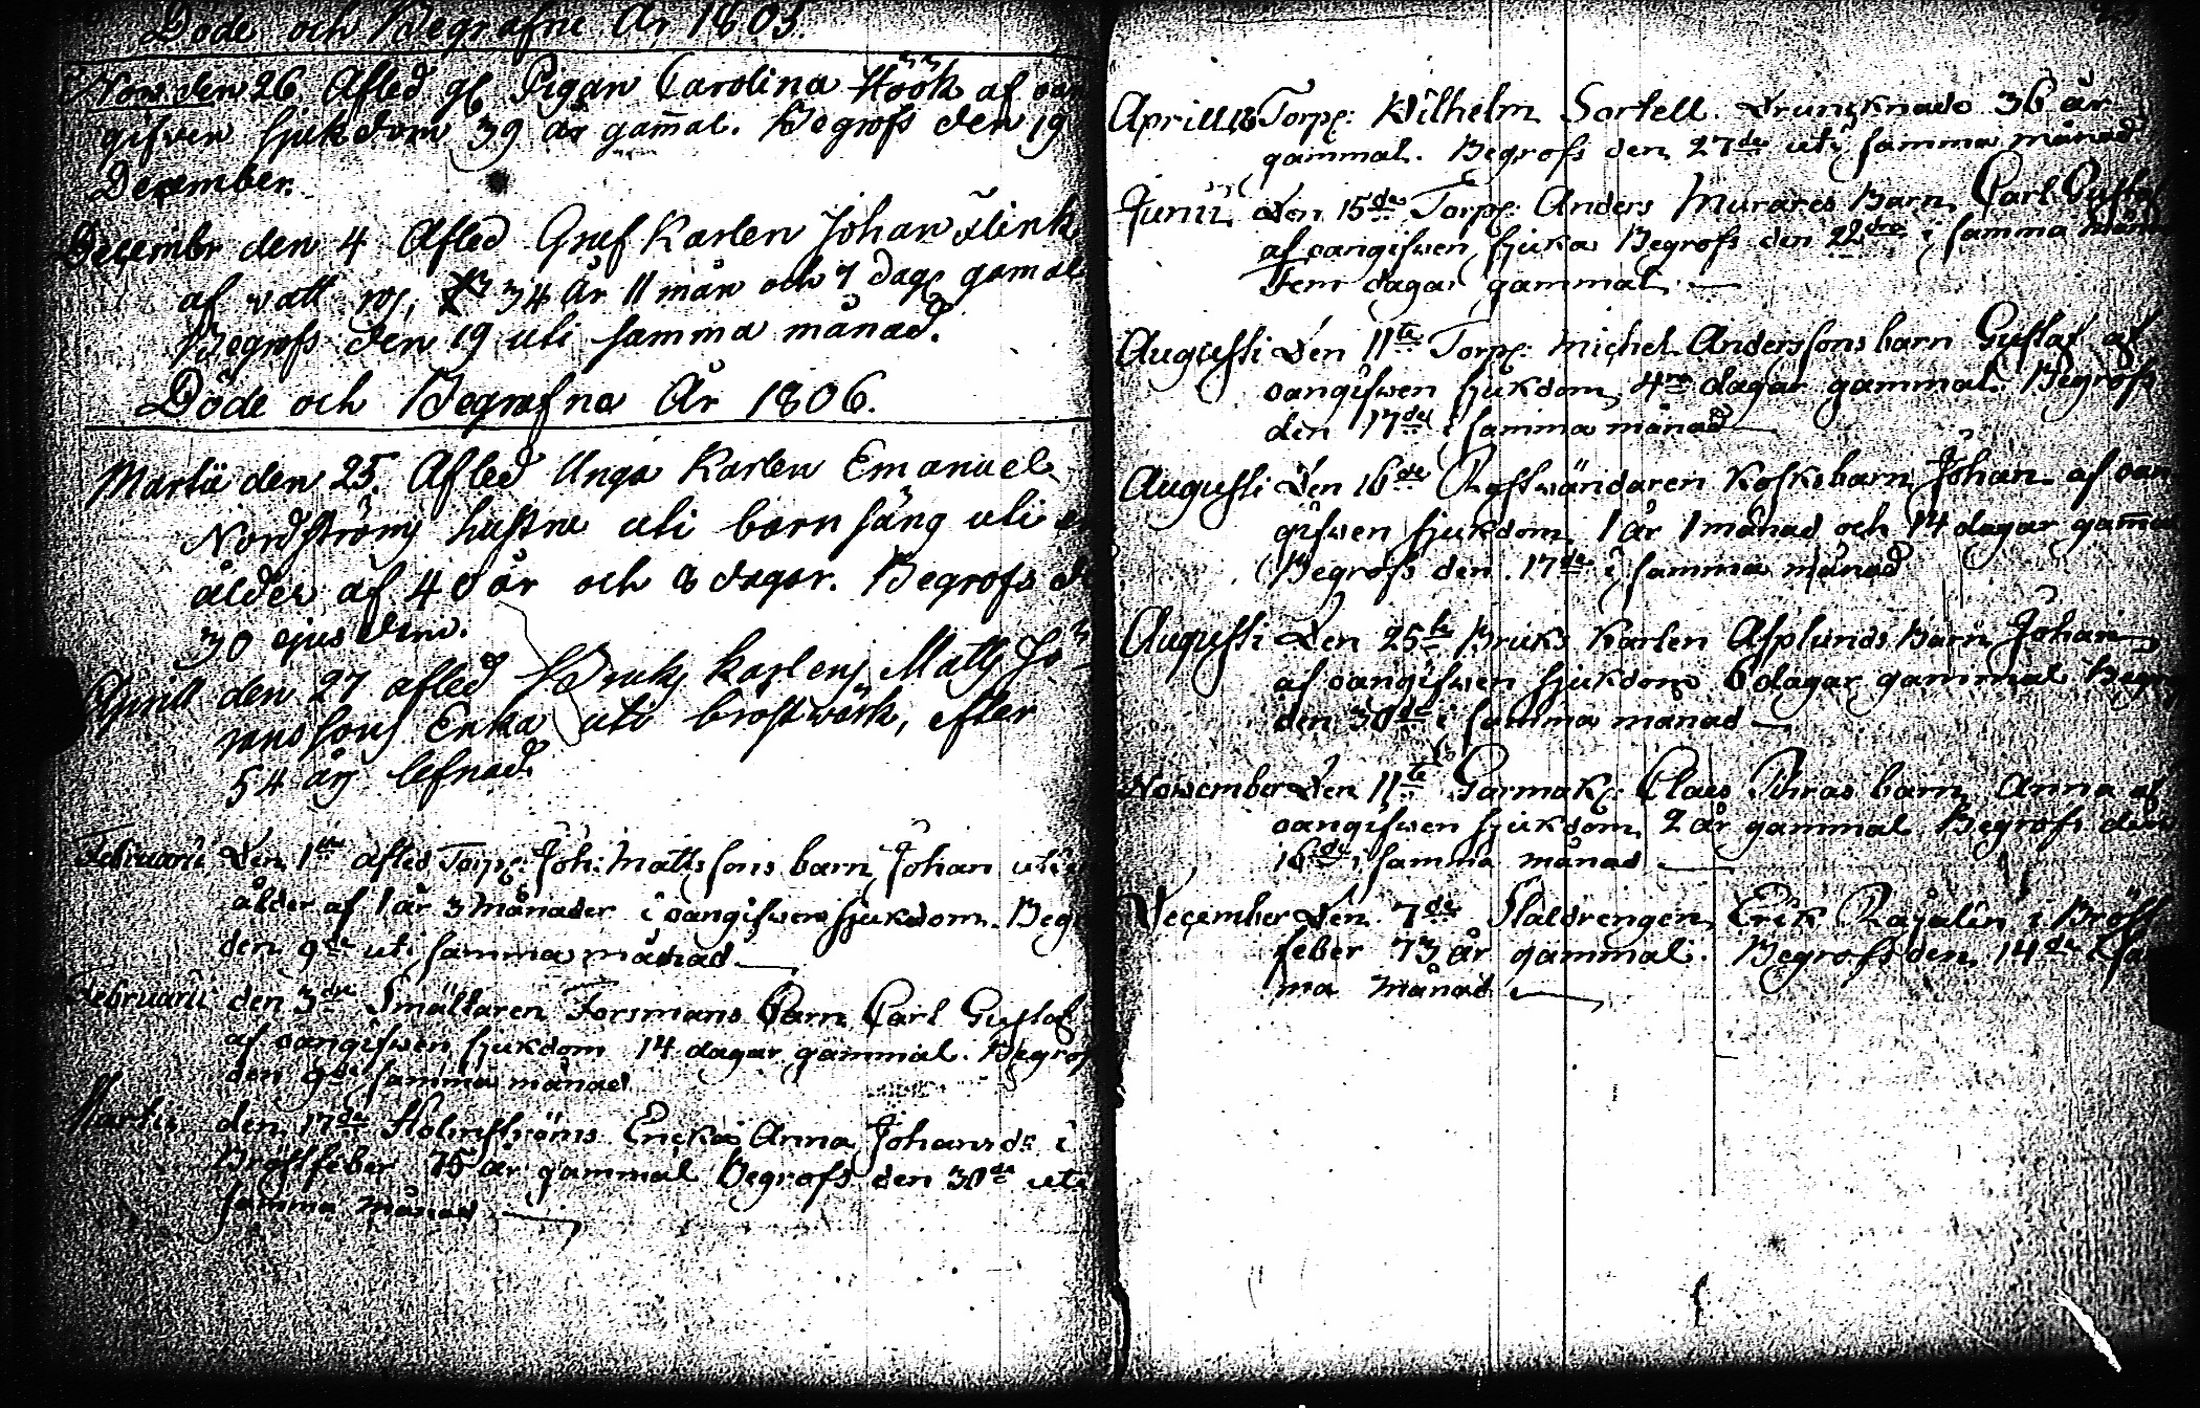 Döde och Begrafne År 1805.
Nov. den 26 Afled gl Pigan Carolina Höök af oan
gifven sjukdom 39 år gam̄al. Begrofs den 19
December.
Decembr den 4 Afled Gruf Karlen Johan Flink
af vatt 34 År 11 mån och 7 dagr gamal
Begrofs den 19 uti samma månad.
Döde och Begrafne År 1806.
Martii den 25. Afled Unga Karlen Emanuel
Nordströms hustru uti barnsäng uti
ålder af 40 år och 8 dagar. Begrofs
30 ejusdem.
Aprill den 27 afled Bruks karlens Matts Jo
hanssons Enka uti bröstwärk, efter
54 års lefnad.
Februarii Den 1ste afled Torp: Joh: Mattssons barn Johan uti
ålder af 1 år 3 månader i oangifwen sjukdom. Beg
den 9de uti samma månad
Februarii den 3die Smältaren Forsmans Barn Carl Gustaf
af oangifwen sjukdom 14 dagar gammal. Begrof
den 9de samma månad
Martii den 17de Holmströms Enka Anna Johansdr i
Bröstfeber 75 år gammal Begrofs den 30de uti
samma månad
Aprill 18 Torp: Wilhelm Sortell. Drunknade 36 år
gammal. Begrofs den 27de uti samma månad
Junii den 15de Torp: Anders Murares Barn Carl Gustaf
af oangifwen sjuka Begrofs den 22dra i samma mån
Fem dagar gammal.
Augusti Den 11te Torp: Michel Anderssons barn Gustaf af
oangifwen sjukdom, 4ra dagar gammal. Begrofs
den 17de i samma månad
Augusti Den 16de Rostwändaren Kosks barn Johan af oan
gifwen sjukdom 1 år 1 månad och 14 dagar gam̄al
Begrofs den 17de i samma månad
Augusti Den 25te Bruks Karlen Asplunds Barn Johan
af oangifwen sjukdom 6 dagar gammal Begro
den 30de i samma månad
November Den 11te Garmak: Claes barn Anna af
oangifwen sjukdom 2 år gammal Begrofs den
16de i samma månad
December Den 7de Staldrengen Erik Rajalin i Bröst
feber 73 år gammal. Begrofs den 14de i sa
ma månad